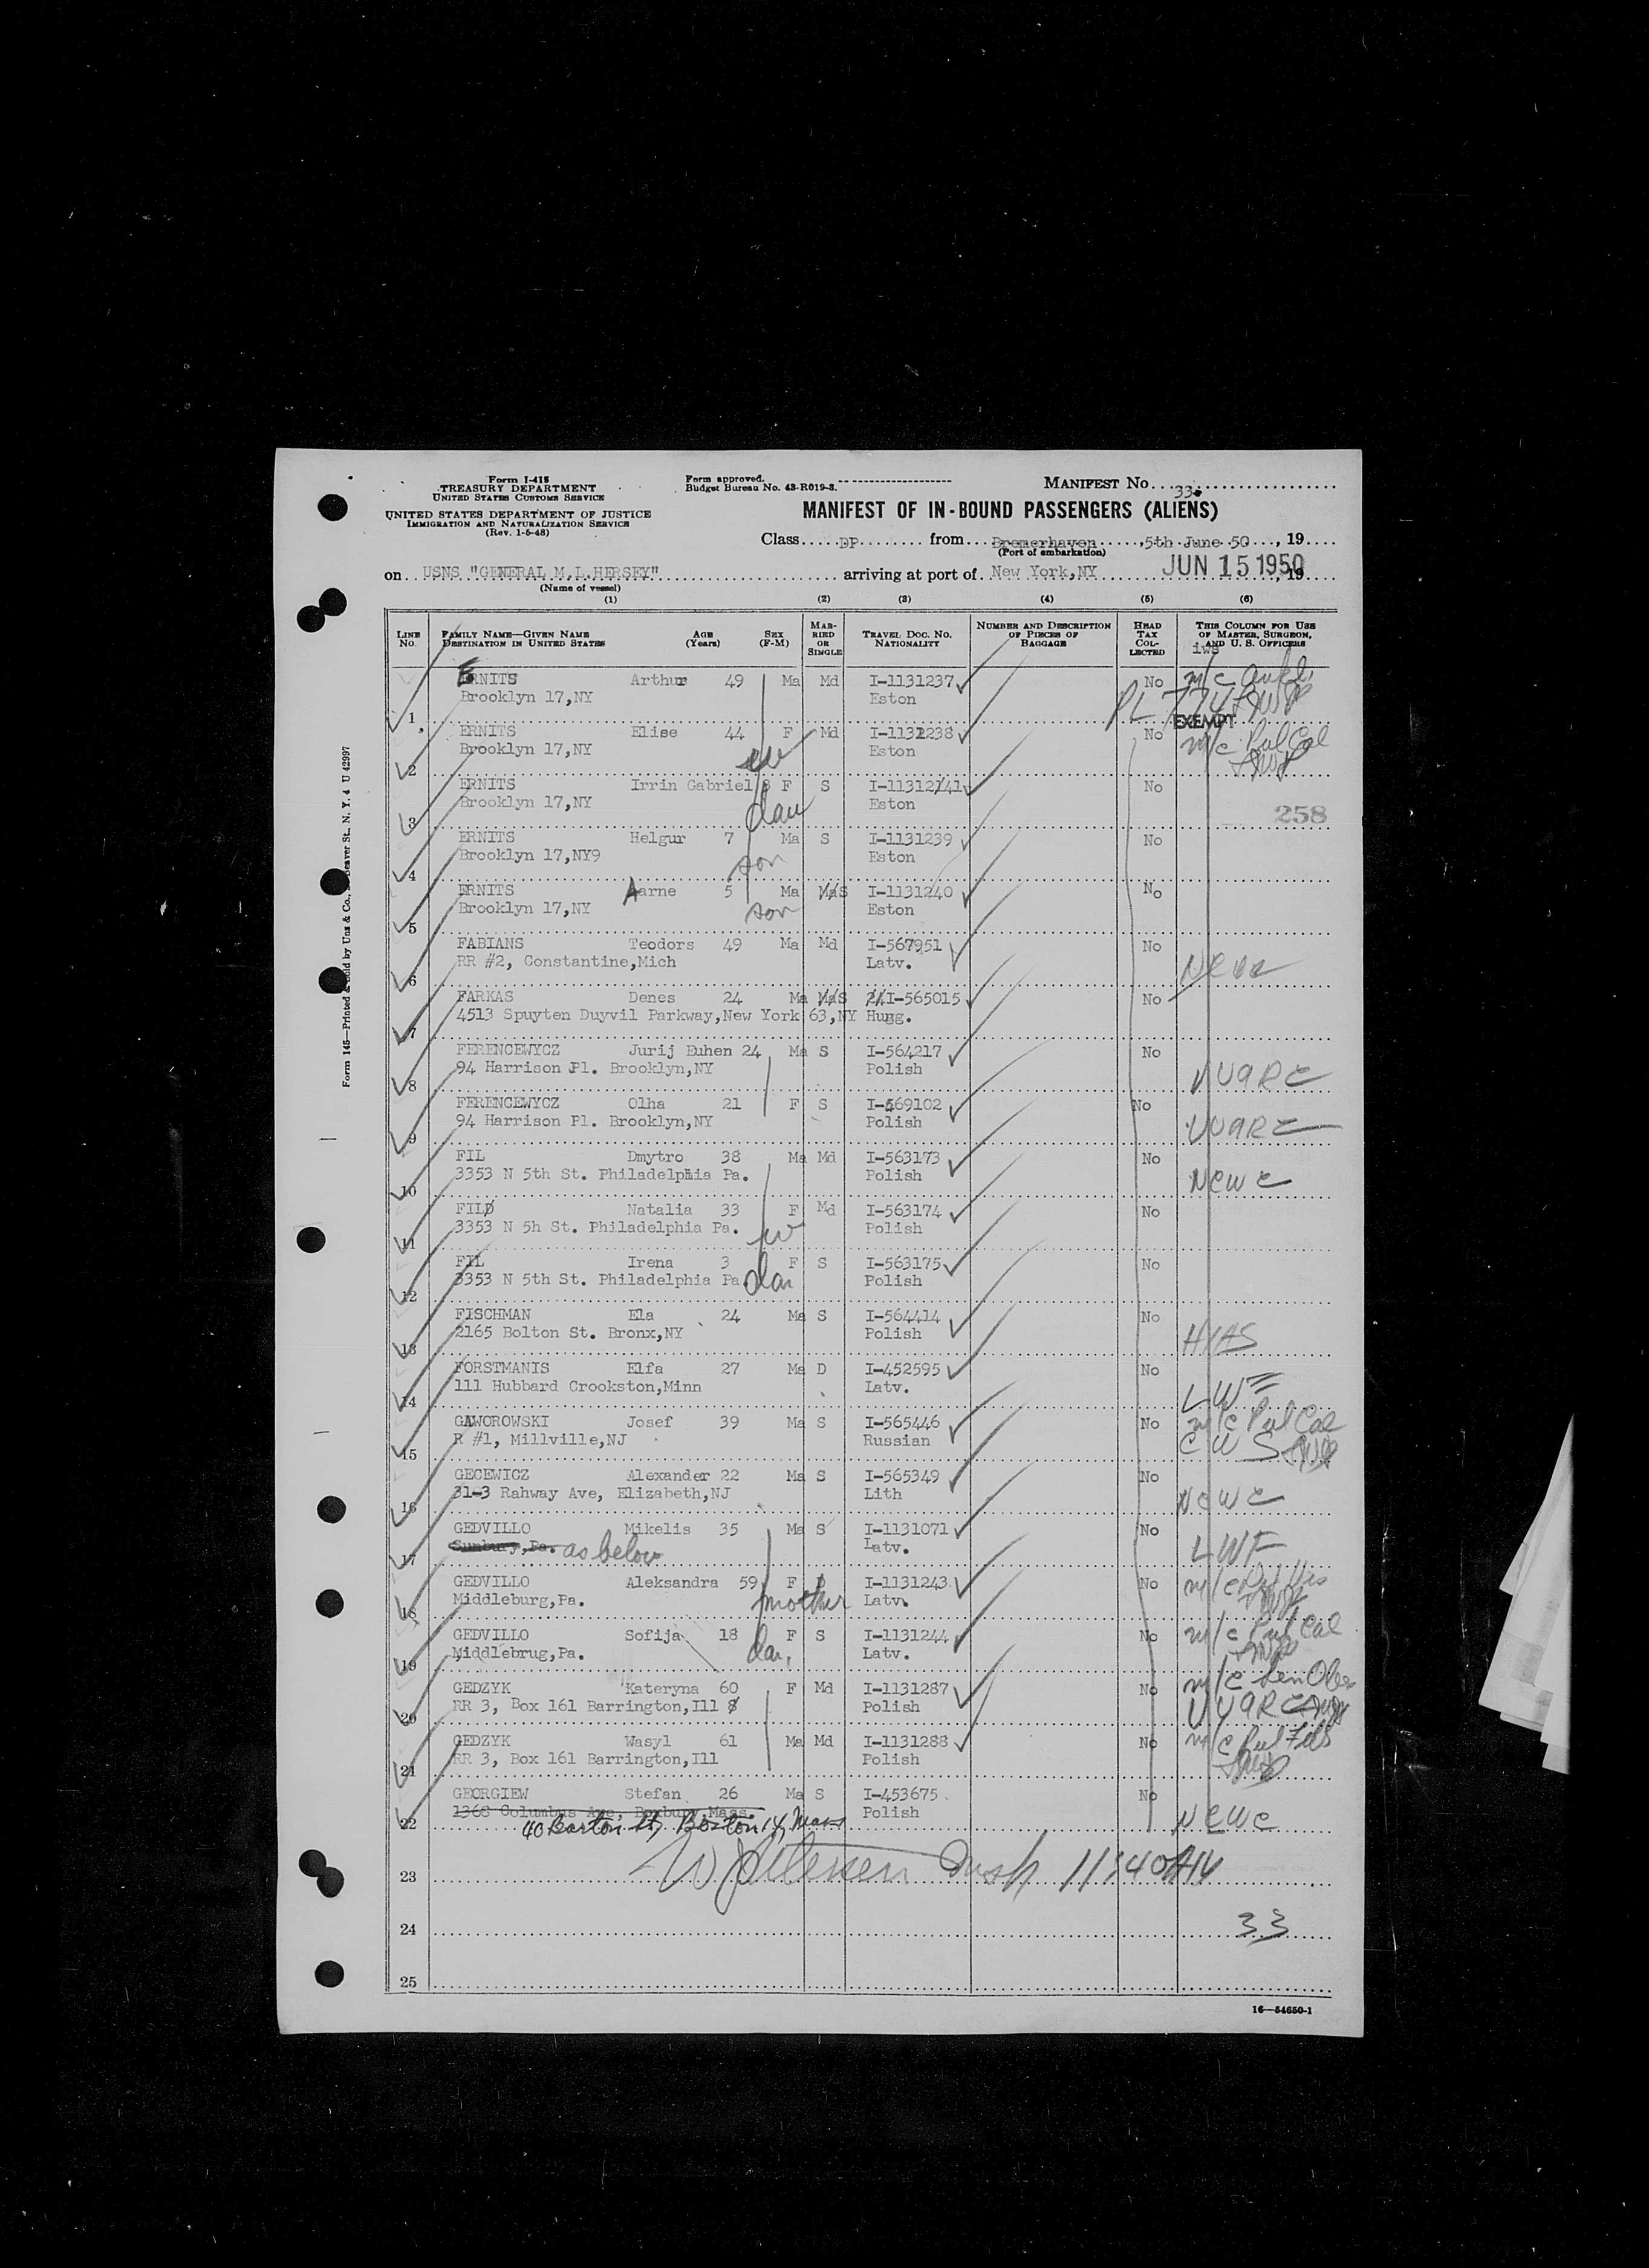 Form I-415
TREASURY DEPARTMENT
UNITED STATES CUSTOMS SERVICE
UNITED STATES DEPARTMENT OF JUSTICE
IMMIGRATION AND NATURALIZATION SERVICE
(Rev. 1-5-48)
Form approved.
Budget Bureau No. 43-R019-3.
MANIFEST No. 33
MANIFEST OF IN-BOUND PASSENGERS (ALIENS)
Class DP from Bremerhaven, 5th June 50, 19
(Port of embarkation)
on USNS "GENERAL M.L.HERSEY" arriving at port of New York,NY JUN 15 1950, 19
(Name of vessel)
(1) (2) (3) (4) (5) (6)
LINE No. FAMILY NAME—GIVEN NAME DESTINATION IN UNITED STATES AGE (Years) SEX (F-M) MARRIED OR SINGLE TRAVEL DOC. NO. NATIONALITY NUMBER AND DESCRIPTION OF PIECES OF BAGGAGE HEAD TAX COLLECTED THIS COLUMN FOR USE OF MASTER, SURGEON, AND U. S. OFFICERS
iws
ERNITS Arthur 49 Ma Md I-1131237 No m/c
Brooklyn 17,NY Eston PL 774
1 EXEMPT
ERNITS Elise 44 F Md I-1131238 No m/c Pul Cal
Brooklyn 17,NY Eston
2
ERNITS Irrin Gabriel 8 F S I-1131241 No
Brooklyn 17,NY dau Eston 258
3
ERNITS Helgur 7 Ma S I-1131239 No
Brooklyn 17,NY9 son Eston
4
ERNITS Aarne 5 Ma S I-1131240 No
Brooklyn 17,NY son Eston
5
FABIANS Teodors 49 Ma Md I-567951 No
RR #2, Constantine,Mich Latv. NCWC
6
FARKAS Denes 24 Ma S I-565015 No
4513 Spuyten Duyvil Parkway,New York 63,NY Hung.
7
FERENCEWYCZ Jurij Euhen 24 Ma S I-564217 No
94 Harrison Pl. Brooklyn,NY Polish UUARC
8
FERENCEWYCZ Olha 21 F S I-569102 No
94 Harrison Pl. Brooklyn,NY Polish UUARC
9
FIL Dmytro 38 Ma Md I-563173 No
3353 N 5th St. Philadelphia Pa. Polish NCWC
10
FIL Natalia 33 F Md I-563174 No
3353 N 5h St. Philadelphia Pa. w Polish
11
FIL Irena 3 F S I-563175 No
3353 N 5th St. Philadelphia Pa dau Polish
12
FISCHMAN Ela 24 Ma S I-564414 No
2165 Bolton St. Bronx,NY Polish HIAS
13
FORSTMANIS Elfa 27 Ma D I-452595 No
111 Hubbard Crookston,Minn Latv. LWF
14
GAWOROWSKI Josef 39 Ma S I-565446 No m/c Pul Cal
R #1, Millville,NJ Russian CWS
15
GECEWICZ Alexander 22 Ma S I-565349 No
31-3 Rahway Ave, Elizabeth,NJ Lith NCWC
16
GEDVILLO Mikelis 35 Ma S I-1131071 No
Sunbury,Pa. as below Latv. LWF
17
GEDVILLO Aleksandra 59 F D I-1131243 No m/c
Middleburg,Pa. mother Latv.
18
GEDVILLO Sofija 18 F S I-1131244 No m/c Pul Cal
Middlebrug,Pa. dau. Latv.
19
GEDZYK Kateryna 60 F Md I-1131287 No m/c
RR 3, Box 161 Barrington,Ill Polish UUARC
20
GEDZYK Wasyl 61 Ma Md I-1131288 No m/c Pul Fib
RR 3, Box 161 Barrington,Ill Polish
21
GEORGIEW Stefan 26 Ma S I-453675 No
1368 Columbus Ave, Roxbury,Mass. Polish NCWC
22 40 Barton St, Boston 14, Mass
23 1140AM
24 33
25
16—54650-1
Form 145—Printed & Sold by Unz & Co., Beaver St., N. Y. 4 U 42997